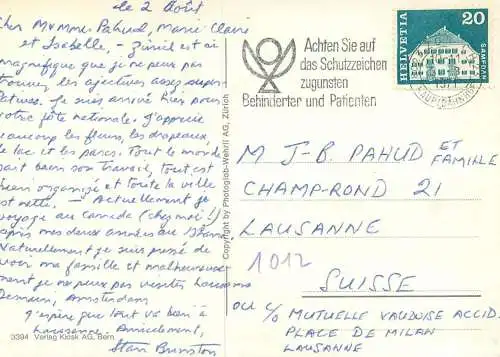 le 2 Août
Cher M. + Mme Pahud, Marie-Claire
et Isabelle, - Zürich est si
magnifique que je ne peux pas
trouver les ajectives assez superl-
atives. Je suis arrivé hier pour
votre fête nationale. J'apprécie
beaucoup les fleurs, les drapeaux,
le lac et les parcs. Tout le monde
fait bien son travail, tout est
bien organizé et toute la ville
est nette. - Actuellement je
voyage au Canada (chez moi!)
après mes deux années au
Naturellement je suis pressé de
voir ma famille et malheureuse-
ment je ne peux pas visiter Lausanne
Demain, Amsterdam
J'espère que tout va bien à
Lausanne. Amicalement,
Stan Brunston
3394 Verlag Kiosk AG, Bern
Copyright by Photoglob-Wehrli AG, Zürich
Achten Sie auf
das Schutzzeichen
zugunsten
Behinderter und Patienten
HELVETIA
20
SAMEDAN
1971
M J-B. PAHUD ET
FAMILLE
CHAMP-ROND 21
LAUSANNE
1012
SUISSE
ou c/o MUTUELLE VAUDOISE ACCID.
PLACE DE MILAN
LAUSANNE